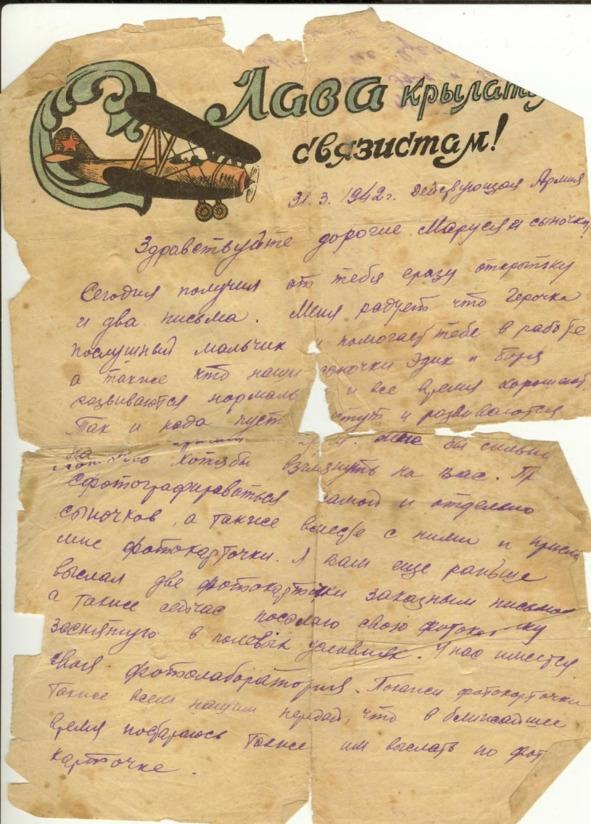 Лава крылату
связистам!
31.3.1942г. Действующая Армия
Здравствуйте дорогие Маруся и сыночки,
Сегодня получил от тебя сразу открытку
и два письма. Меня радует что Герочка
послушный мальчик и помогает тебе в работе
а также что наши сыночки Эдик и Боря
развиваются нормаль и все время хорошеют.
Так и надо пуст стут и развиваются
бы сильно
хотябы взглянуть на вас. Пр
сфотографироваться самой и отдельно
сыночков, а также вместе с ними и присли
мне фотокарточки. Я вам еще раньше
выслал две фотокарточки заказным письмом
а также сейчас посылаю свою фоток ку
заснятую в полевых условиях. У нас имеется
своя фотолаборатория. Покажи фотокарточки
также всем нашим передай, что в ближайшее
время постараюсь также им выслать по фот
карточке.